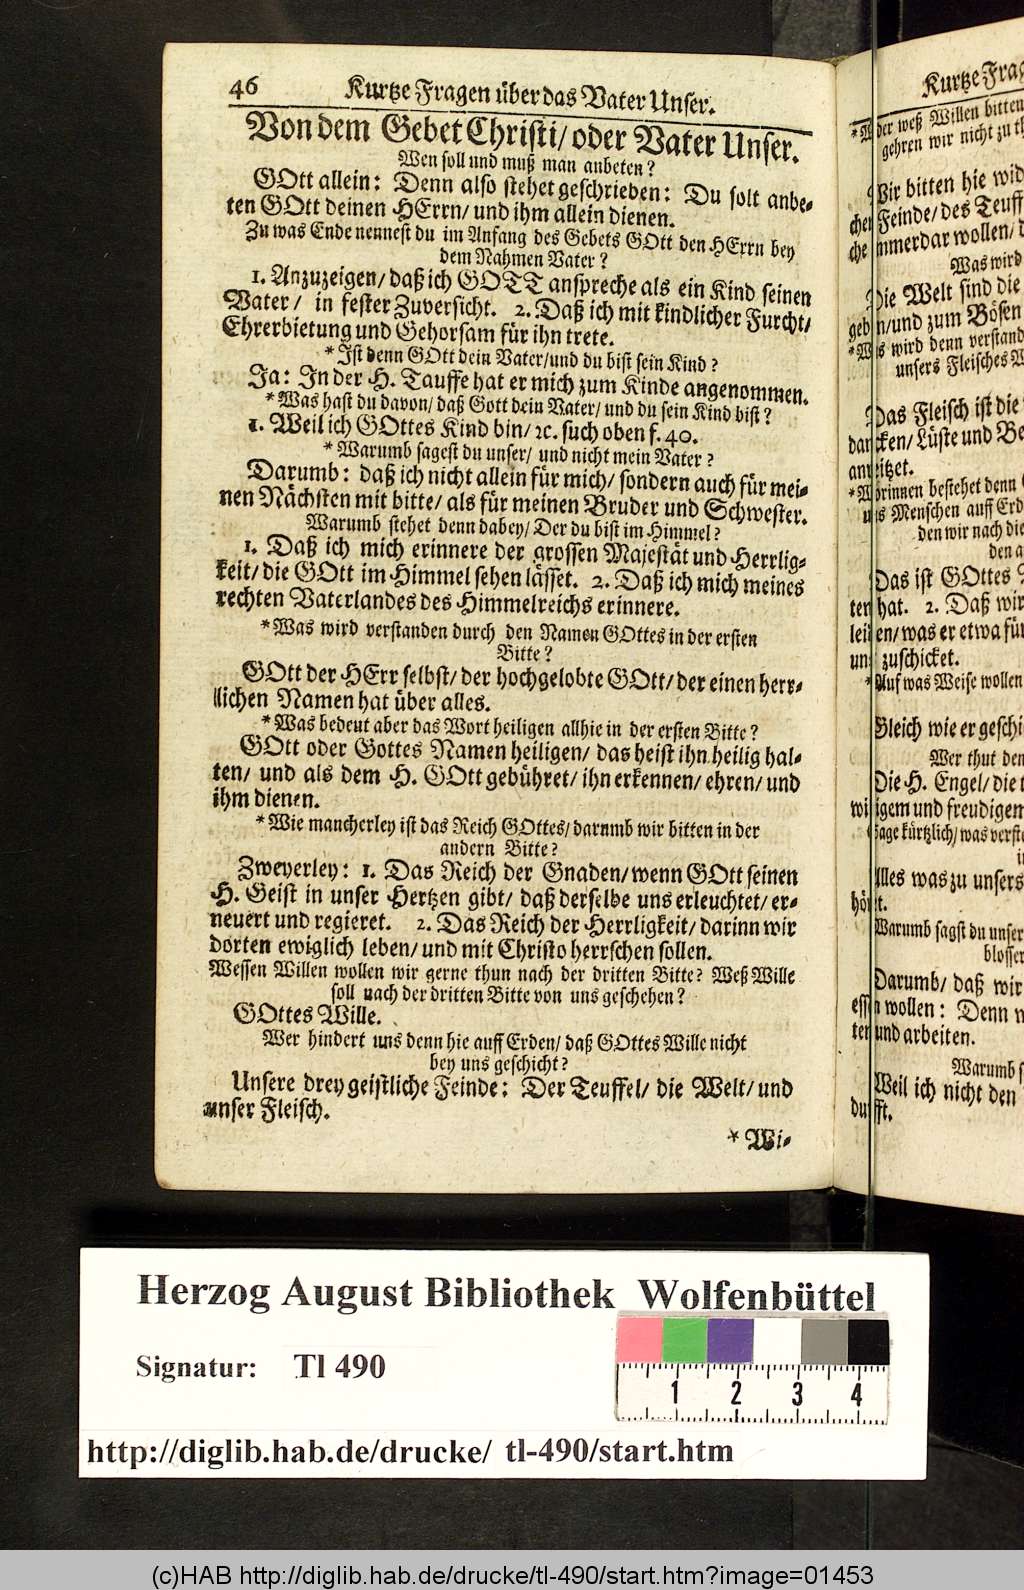 46 Kurtze Fragen über das Vater Unser.
Von dem Gebet Christi/ oder Vater Unser.
Wen soll und muß man anbeten?
GOtt allein: Denn also stehet geschrieben: Du solt anbe-
ten GOtt deinen HErrn/ und ihm allein dienen.
Zu was Ende nennest du im Anfang des Gebets GOtt den HErrn bey
dem Nahmen Vater?
1. Anzuzeigen/ daß ich GOTT anspreche als ein Kind seinen
Vater/ in fester Zuversicht. 2. Daß ich mit kindlicher Furcht/
Ehrerbietung und Gehorsam für ihn trete.
* Ist denn GOtt dein Vater/ und du bist sein Kind?
Ja: In der H. Tauffe hat er mich zum Kinde angenommen.
* Was hast du davon/ daß Gott dein Vater/ und du sein Kind bist?
1. Weil ich GOttes Kind bin/ ꝛc. such oben f. 40.
* Warumb sagest du unser/ und nicht mein Vater?
Darumb: daß ich nicht allein für mich/ sondern auch für mei-
nen Nächsten mit bitte/ als für meinen Bruder und Schwester.
Warumb stehet denn dabey/ Der du bist im Himmel?
1. Daß ich mich erinnere der grossen Majestät und Herrlig-
keit/ die GOtt im Himmel sehen lässet. 2. Daß ich mich meines
rechten Vaterlandes des Himmelreichs erinnere.
* Was wird verstanden durch den Namen GOttes in der ersten
Bitte?
GOtt der HErr selbst/ der hochgelobte GOtt/ der einen herr-
llichen Namen hat über alles.
* Was bedeut aber das Wort heiligen allhie in der ersten Bitte?
GOtt oder Gottes Namen heiligen/ das heist ihn heilig hal-
ten/ und als dem H. GOtt gebühret/ ihn erkennen/ ehren/ und
ihm dienen.
* Wie mancherley ist das Reich GOttes/ darumb wir bitten in der
andern Bitte?
Zweyerley: 1. Das Reich der Gnaden/ wenn GOtt seinen
H. Geist in unser Hertzen gibt/ daß derselbe uns erleuchtet/ er-
neuert und regieret. 2. Das Reich der Herrligkeit/ darinn wir
dorten ewiglich leben/ und mit Christo herrschen sollen.
Wessen Willen wollen wir gerne thun nach der dritten Bitte? Weß Wille
soll nach der dritten Bitte von uns geschehen?
GOttes Wille.
Wer hindert uns denn hie auff Erden/ daß GOttes Wille nicht
bey uns geschicht?
Unsere drey geistliche Feinde: Der Teuffel/ die Welt/ und
unser Fleisch.
* Wi-
Kurtze
der weß Willen bitten
gehren wir nicht zu
Wir bitten hie
Feinde/ des
immerdar wollen/
Was wird
Die Welt sind die
/und zum Bösen
wird denn
unsers Fleisches
Das Fleisch ist die
Lüste und
bestehet denn
Menschen auff
den wir nach die
Das ist GOttes
hat. 2. Daß wir
was er etwa für
zuschicket.
* Auf was Weise wollen
Gleich wie er
Wer thut
Die H. Engel/ die
und freudigem
Sage kürtzlich/
Alles was zu unsers
Warumb sagst du unser
Darumb/ daß wir
wollen: Denn
und arbeiten.
Warumb
Weil ich nicht den
Herzog August Bibliothek Wolfenbüttel
Signatur: Tl 490
1 2 3 4
http://diglib.hab.de/drucke/ tl-490/start.htm
(c)HAB http://diglib.hab.de/drucke/tl-490/start.htm?image=01453